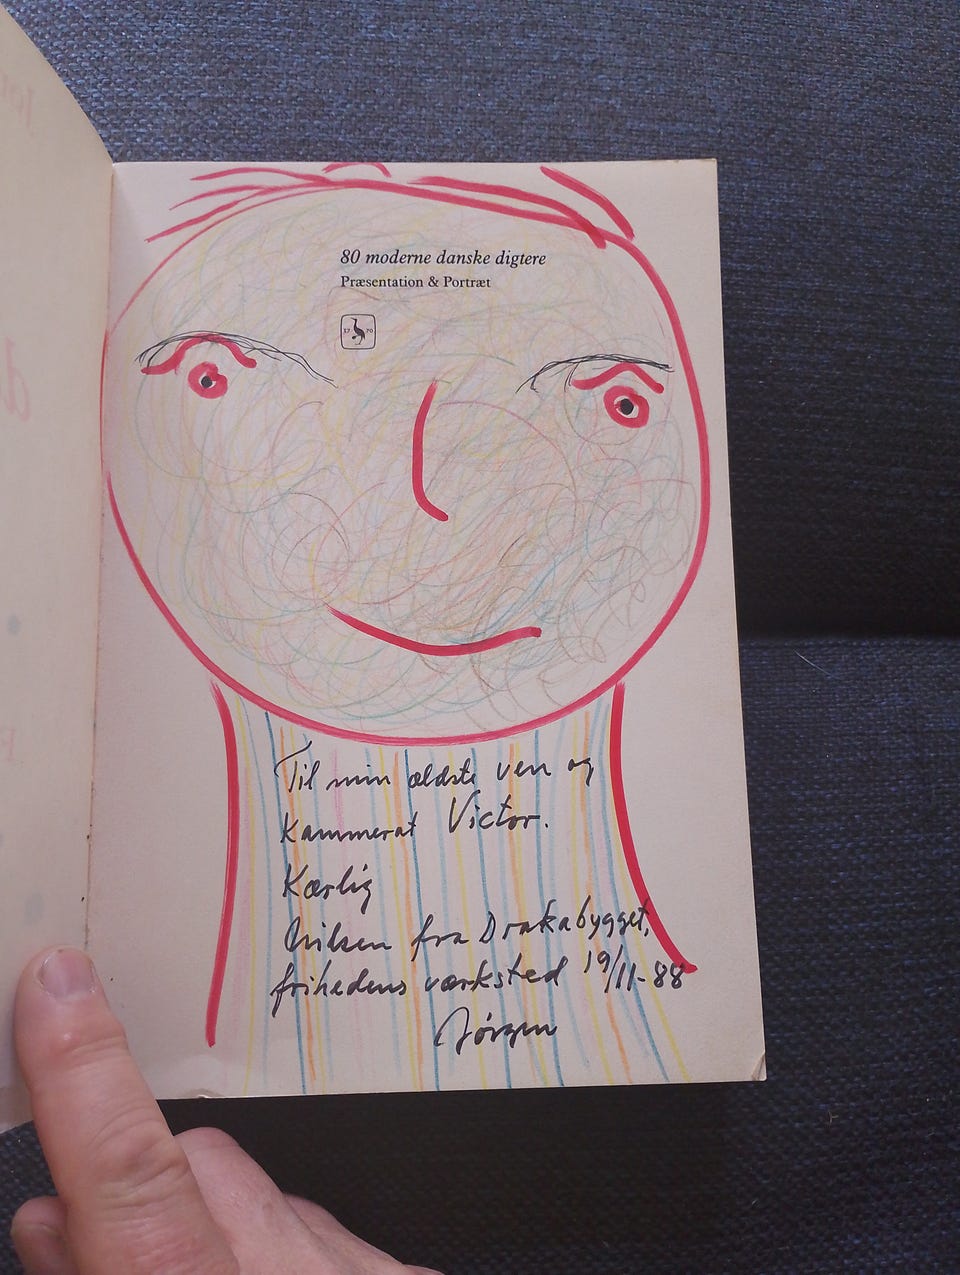 80 moderne danske digtere
Præsentation & Portræt
17 70
Til min ældste ven og
kammerat Victor.
Kærlig
hilsen fra Drakabygget,
frihedens værksted 19/11-88
Jørgen